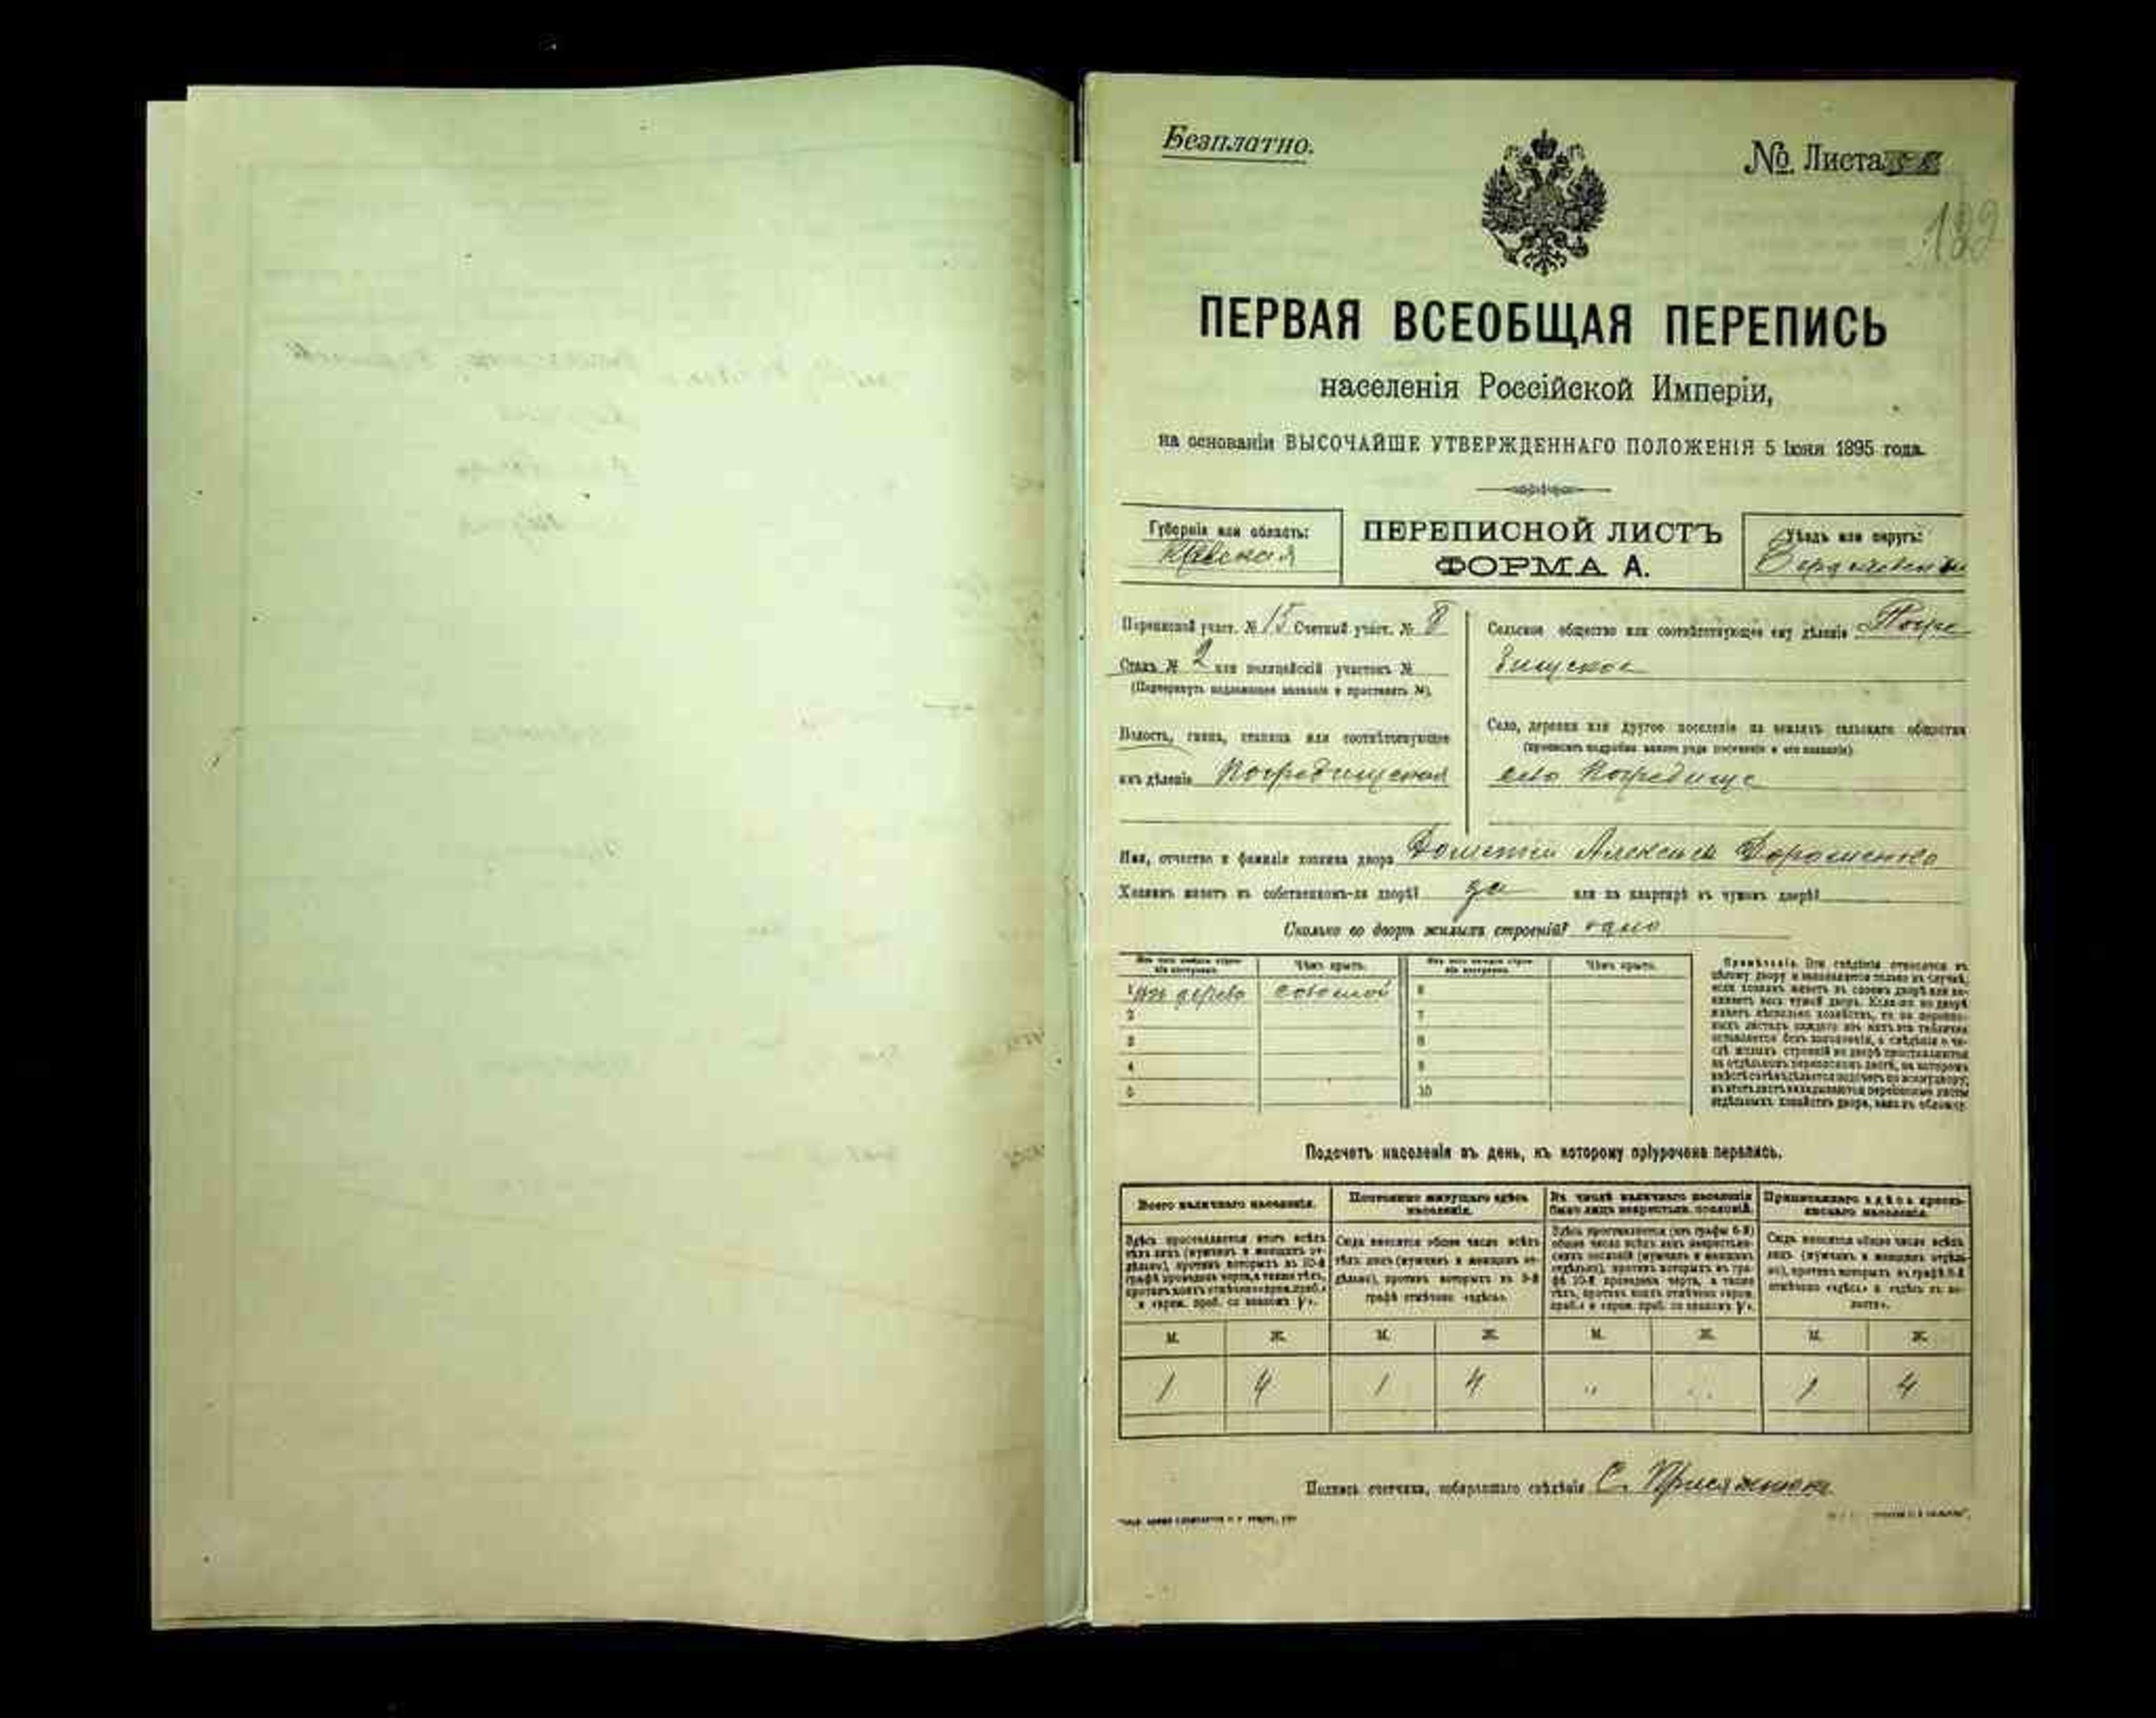 Безплатно.
№ Листа
ПЕРВАЯ ВСЕОБЩАЯ ПЕРЕПИСЬ
населенія Россійской Имперіи,
на основаніи ВЫСОЧАЙШЕ УТВЕРЖДЕННАГО ПОЛОЖЕНІЯ 5 Іюня 1895 года.
Губернія или область:
Кіевская
ПЕРЕПИСНОЙ ЛИСТЪ
ФОРМА А.
Уѣздъ или округъ:
Бердичевскій
Переписной участ. № 15 Счетный участ. № 8
Станъ № 2 или полицейскій участокъ №
(Подчеркнуть надлежащее названіе и проставить №).
Волость, гмина, станица или соотвѣтствующее
имъ дѣленіе Погребищенская
Сельское общество или соотвѣтствующее ему дѣленіе Погре
бищское
Село, деревня или другое поселеніе на земляхъ сельскаго общества
(прописать подробно какого рода поселеніе и его названіе)
село Погребище
Имя, отчество и фамилія хозяина двора Дометій Алексѣев Дорошенко
Хозяинъ живетъ въ собственномъ-ли дворѣ? да или на квартирѣ въ чужомъ дворѣ?
Сколько во дворѣ жилыхъ строеній? одно
Изъ чего каждое строеніе построено. Чѣмъ крыто. Изъ чего каждое строеніе построено. Чѣмъ крыто.
1 изъ дерева соломой 6
2 7
3 8
4 9
5 10
Примѣчаніе. Эти свѣдѣнія относятся къ
цѣлому двору и заполняются только въ случаѣ,
если хозяинъ живетъ въ своемъ дворѣ или за-
нимаетъ весь чужой дворъ. Если же во дворѣ
живетъ нѣсколько хозяйствъ, то на перепис-
ныхъ листахъ каждаго изъ нихъ эта табличка
оставляется безъ заполненія, а свѣдѣнія о чи-
слѣ жилыхъ строеній во дворѣ проставляются
на отдѣльномъ переписномъ листѣ, на которомъ
вмѣстѣ съ тѣмъ дѣлается подсчетъ по всему двору;
въ этотъ листъ вкладываются переписные листы
отдѣльныхъ хозяйствъ двора, какъ въ обложку.
Подсчетъ населенія въ день, къ которому пріурочена перепись.
Всего наличнаго населенія.
Здѣсь проставляется итогъ всѣхъ
тѣхъ лицъ (мужчинъ и женщинъ от-
дѣльно), противъ которыхъ въ 10-й
графѣ проведена черта, а также тѣхъ,
противъ коихъ отмѣчено «врем. преб.»
Постоянно живущаго здѣсь
населенія.
Сюда вносится общее число всѣхъ
тѣхъ лицъ (мужчинъ и женщинъ от-
дѣльно), противъ которыхъ въ 9-й
графѣ отмѣчено «здѣсь».
Въ числѣ наличнаго населенія
было лицъ некрестьянск. сословій.
Здѣсь проставляется (изъ графы 6-й)
общее число всѣхъ лицъ некрестьян-
скихъ сословій (мужчинъ и женщинъ
отдѣльно), противъ которыхъ въ гра-
фѣ 10-й проведена черта, а также
тѣхъ, противъ коихъ отмѣчено «врем.
Приписаннаго здѣсь кресть-
янскаго населенія.
Сюда вносится общее число всѣхъ
лицъ (мужчинъ и женщинъ отдѣль-
но), противъ которыхъ въ графѣ 8-й
отмѣчено «здѣсь» и «здѣсь въ во-
лости».
М. Ж. М. Ж. М. Ж. М. Ж.
1 4 1 4 " " 1 4
Подпись счетчика, собиравшаго свѣдѣнія С. Присяжнюк